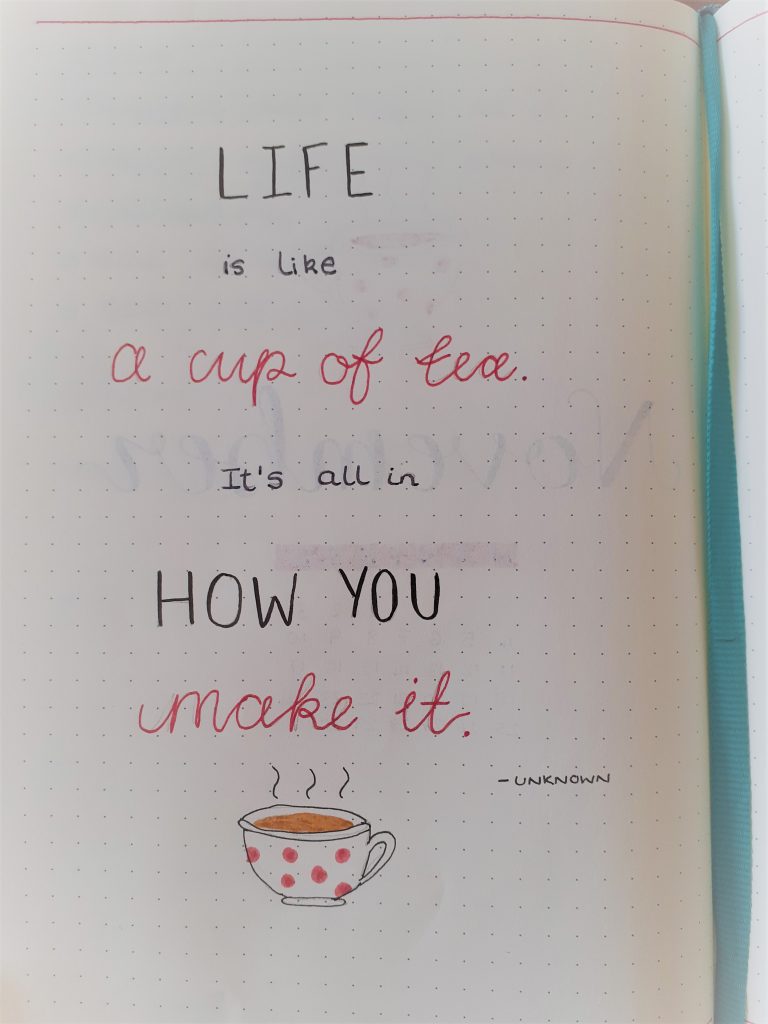 LIFE
is like
a cup of tea.
It's all in
HOW YOU
make it.
- UNKNOWN